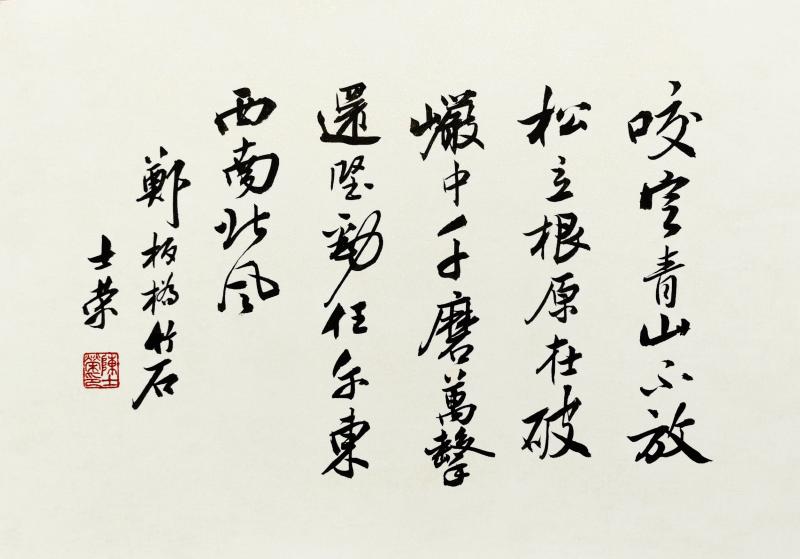 咬定青山不放
松立根原在破
巗中千磨萬擊
還堅勁任尔東
西南北风
鄭板橋竹石
士荣
陳士榮印